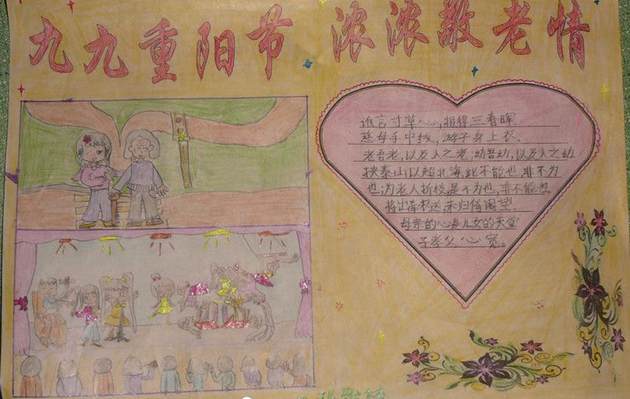 九九重阳节 浓浓敬老情
谁言寸草心,报得三春晖
慈母手中线,游子身上衣.
老吾老,以及人之老;幼吾幼,以及人之幼
挟泰山以超北海,此不能也,非不为
也;为老人折枝,是不为也,非不能也
母亲的心是儿女的天堂
子孝父心宽。